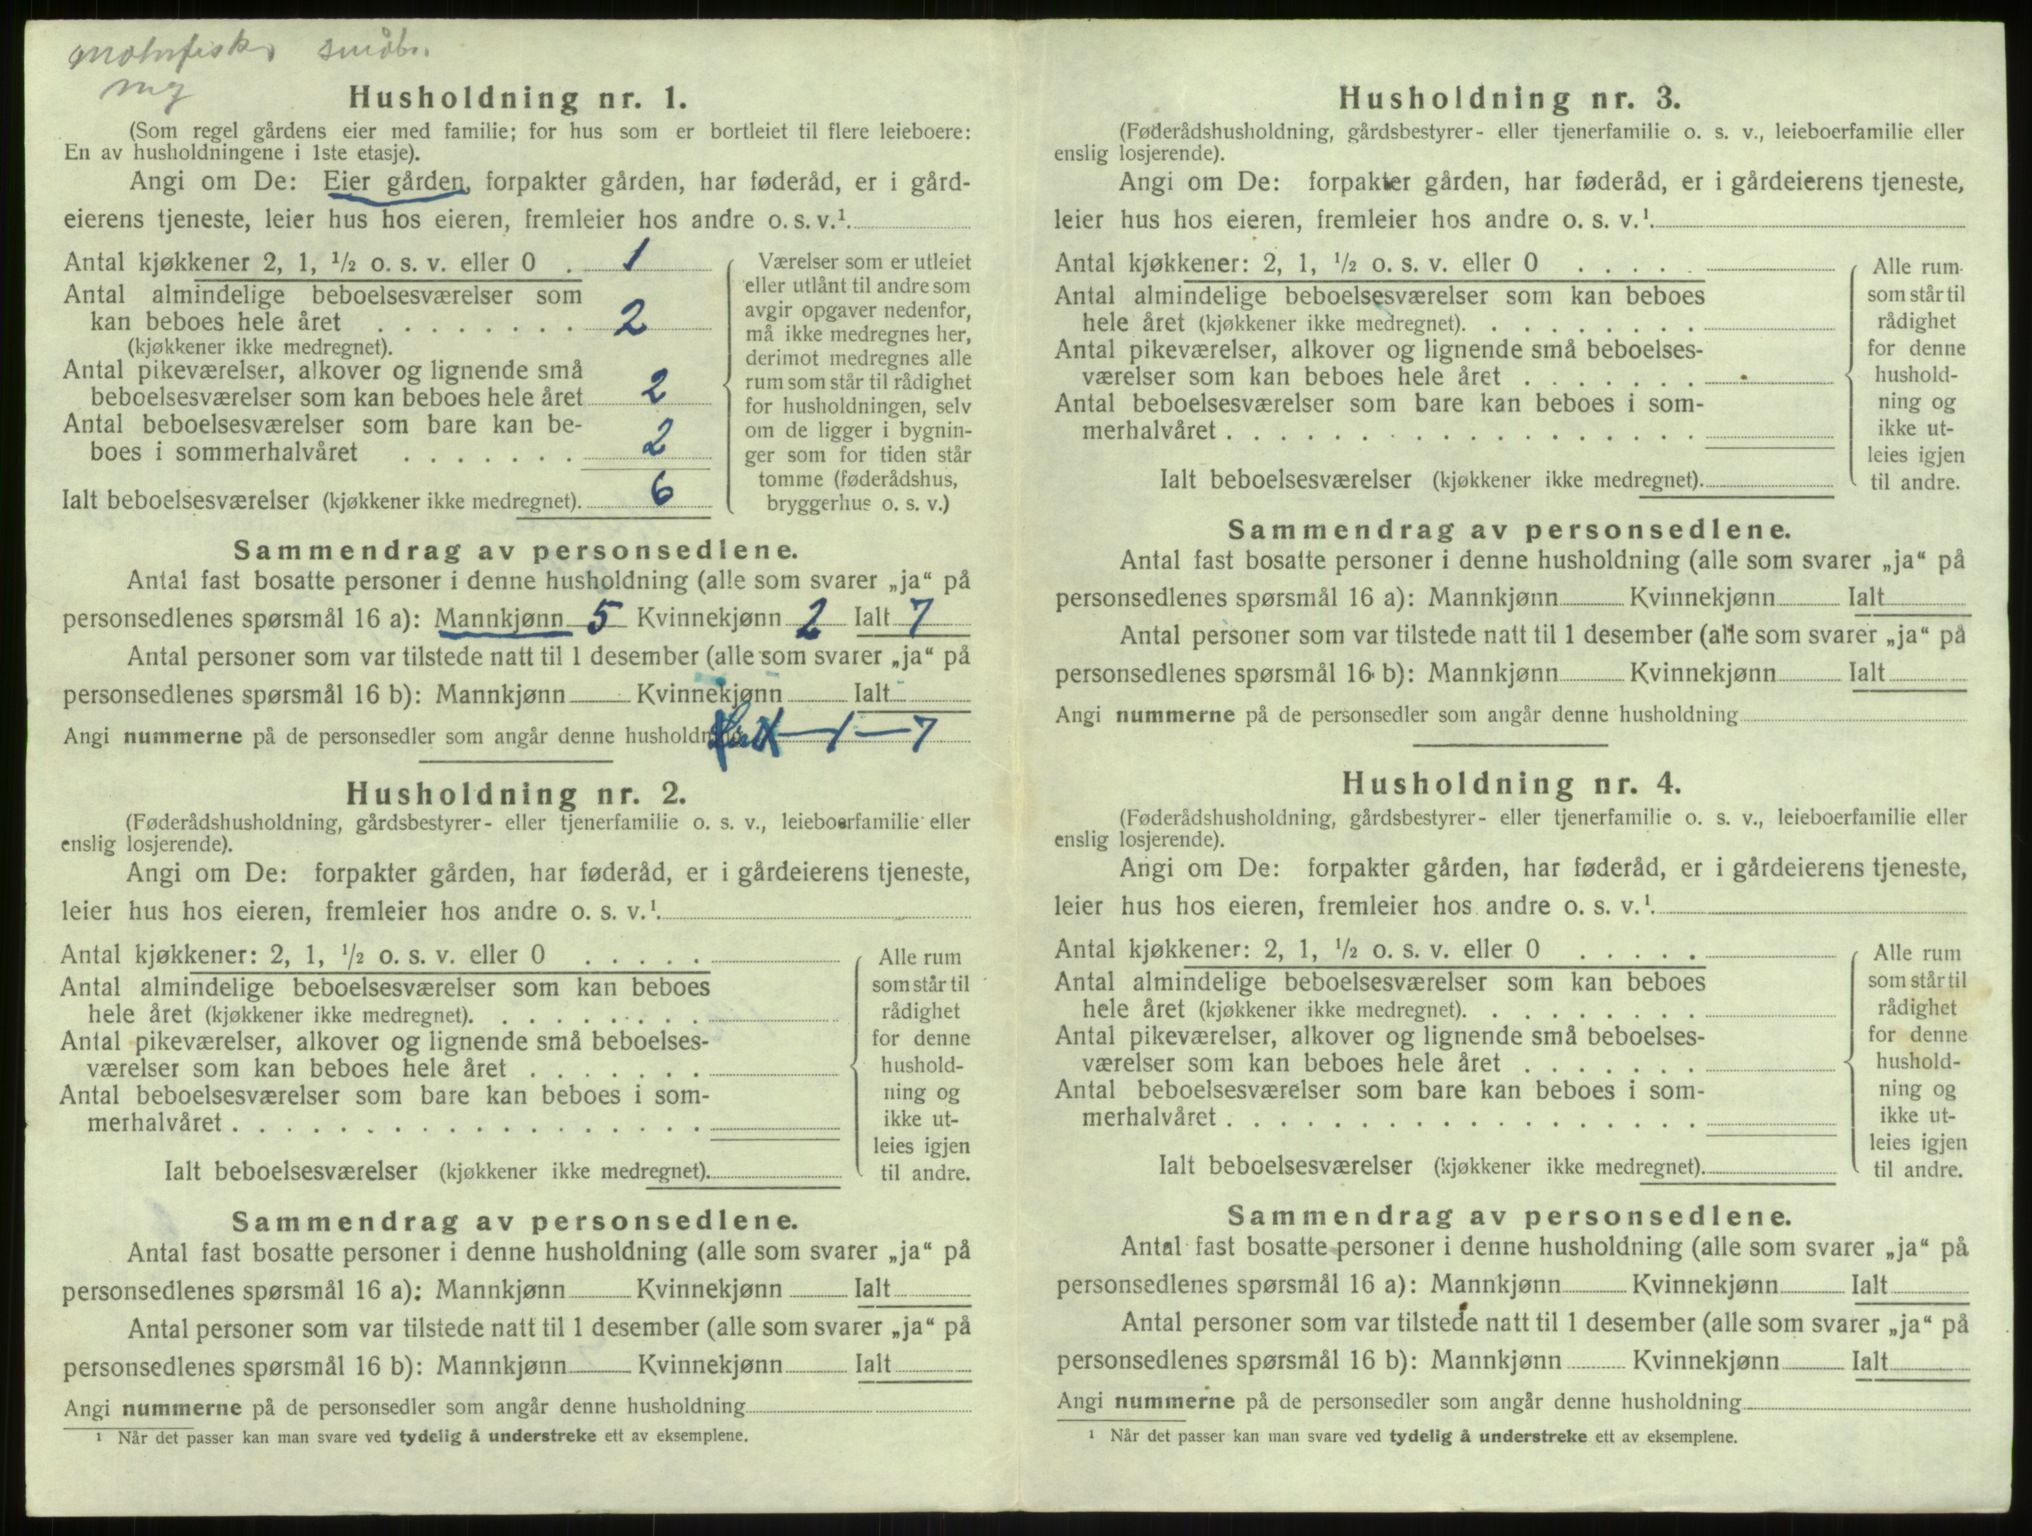 småbr.
Husholdning nr. 1.
(Som regel gårdens eier med familie; for hus som er bortleiet til flere leieboere:
En av husholdningene i 1ste etasje).
Angi om De: Eier gården, forpakter gården, har føderåd, er i gård-
eierens tjeneste, leier hus hos eieren, fremleier hos andre o. s. v.¹.
Antal kjøkkener 2, 1, ½ o. s. v. eller 0 . 1
Antal almindelige beboelsesværelser som
kan beboes hele året . . . . . . . . 2
(kjøkkener ikke medregnet).
Antal pikeværelser, alkover og lignende små
beboelsesværelser som kan beboes hele året 2
Antal beboelsesværelser som bare kan be-
boes i sommerhalvåret . . . . . . . 2
Ialt beboelsesværelser (kjøkkener ikke medregnet). 6
Værelser som er utleiet
eller utlånt til andre som
avgir opgaver nedenfor,
må ikke medregnes her,
derimot medregnes alle
rum som står til rådighet
for husholdningen, selv
om de ligger i bygnin-
ger som for tiden står
tomme (føderådshus,
bryggerhus o. s. v.)
Sammendrag av personsedlene.
Antal fast bosatte personer i denne husholdning (alle som svarer „ja“ på
personsedlenes spørsmål 16 a): Mannkjønn 5 Kvinnekjønn 2 Ialt 7
Antal personer som var tilstede natt til 1 desember (alle som svarer „ja“ på
personsedlenes spørsmål 16 b): Mannkjønn Kvinnekjønn Ialt
Angi nummerne på de personsedler som angår denne husholdning 1 — 7
Husholdning nr. 2.
(Føderådshusholdning, gårdsbestyrer- eller tjenerfamilie o. s. v., leieboerfamilie eller
enslig losjerende).
Angi om De: forpakter gården, har føderåd, er i gårdeierens tjeneste,
leier hus hos eieren, fremleier hos andre o. s. v.¹.
Antal kjøkkener: 2, 1, ½ o. s. v. eller 0 . . . . .
Antal almindelige beboelsesværelser som kan beboes
hele året (kjøkkener ikke medregnet). . . . . . . . .
Antal pikeværelser, alkover og lignende små beboelses-
værelser som kan beboes hele året . . . . . . .
Antal beboelsesværelser som bare kan beboes i som-
merhalvåret . . . . . . . . . . . . . . . . . .
Ialt beboelsesværelser (kjøkkener ikke medregnet).
Alle rum
som står til
rådighet
for denne
hushold-
ning og
ikke ut-
leies igjen
til andre.
Sammendrag av personsedlene.
Antal fast bosatte personer i denne husholdning (alle som svarer „ja“ på
personsedlenes spørsmål 16 a): Mannkjønn Kvinnekjønn Ialt
Antal personer som var tilstede natt til 1 desember (alle som svarer „ja“ på
personsedlenes spørsmål 16 b): Mannkjønn Kvinnekjønn Ialt
Angi nummerne på de personsedler som angår denne husholdning
¹ Når det passer kan man svare ved tydelig å understreke ett av eksemplene.
Husholdning nr. 3.
(Føderådshusholdning, gårdsbestyrer- eller tjenerfamilie o. s. v., leieboerfamilie eller
enslig losjerende).
Angi om De: forpakter gården, har føderåd, er i gårdeierens tjeneste,
leier hus hos eieren, fremleier hos andre o. s. v.¹.
Antal kjøkkener: 2, 1, ½ o. s. v. eller 0 . . . . .
Antal almindelige beboelsesværelser som kan beboes
hele året (kjøkkener ikke medregnet). . . . . . . . .
Antal pikeværelser, alkover og lignende små beboelses-
værelser som kan beboes hele året . . . . . . .
Antal beboelsesværelser som bare kan beboes i som-
merhalvåret . . . . . . . . . . . . . . . . . .
Ialt beboelsesværelser (kjøkkener ikke medregnet).
Alle rum
som står til
rådighet
for denne
hushold-
ning og
ikke ut-
leies igjen
til andre.
Sammendrag av personsedlene.
Antal fast bosatte personer i denne husholdning (alle som svarer „ja“ på
personsedlenes spørsmål 16 a): Mannkjønn Kvinnekjønn Ialt
Antal personer som var tilstede natt til 1 desember (alle som svarer „ja“ på
personsedlenes spørsmål 16 b): Mannkjønn Kvinnekjønn Ialt
Angi nummerne på de personsedler som angår denne husholdning
Husholdning nr. 4.
(Føderådshusholdning, gårdsbestyrer- eller tjenerfamilie o. s. v., leieboerfamilie eller
enslig losjerende).
Angi om De: forpakter gården, har føderåd, er i gårdeierens tjeneste,
leier hus hos eieren, fremleier hos andre o. s. v.¹.
Antal kjøkkener: 2, 1, ½ o. s. v. eller 0 . . . . .
Antal almindelige beboelsesværelser som kan beboes
hele året (kjøkkener ikke medregnet). . . . . . . . .
Antal pikeværelser, alkover og lignende små beboelses-
værelser som kan beboes hele året . . . . . . .
Antal beboelsesværelser som bare kan beboes i som-
merhalvåret . . . . . . . . . . . . . . . . . .
Ialt beboelsesværelser (kjøkkener ikke medregnet).
Alle rum
som står til
rådighet
for denne
hushold-
ning og
ikke ut-
leies igjen
til andre.
Sammendrag av personsedlene.
Antal fast bosatte personer i denne husholdning (alle som svarer „ja“ på
personsedlenes spørsmål 16 a): Mannkjønn Kvinnekjønn Ialt
Antal personer som var tilstede natt til 1 desember (alle som svarer „ja“ på
personsedlenes spørsmål 16 b): Mannkjønn Kvinnekjønn Ialt
Angi nummerne på de personsedler som angår denne husholdning
¹ Når det passer kan man svare ved tydelig å understreke ett av eksemplene.